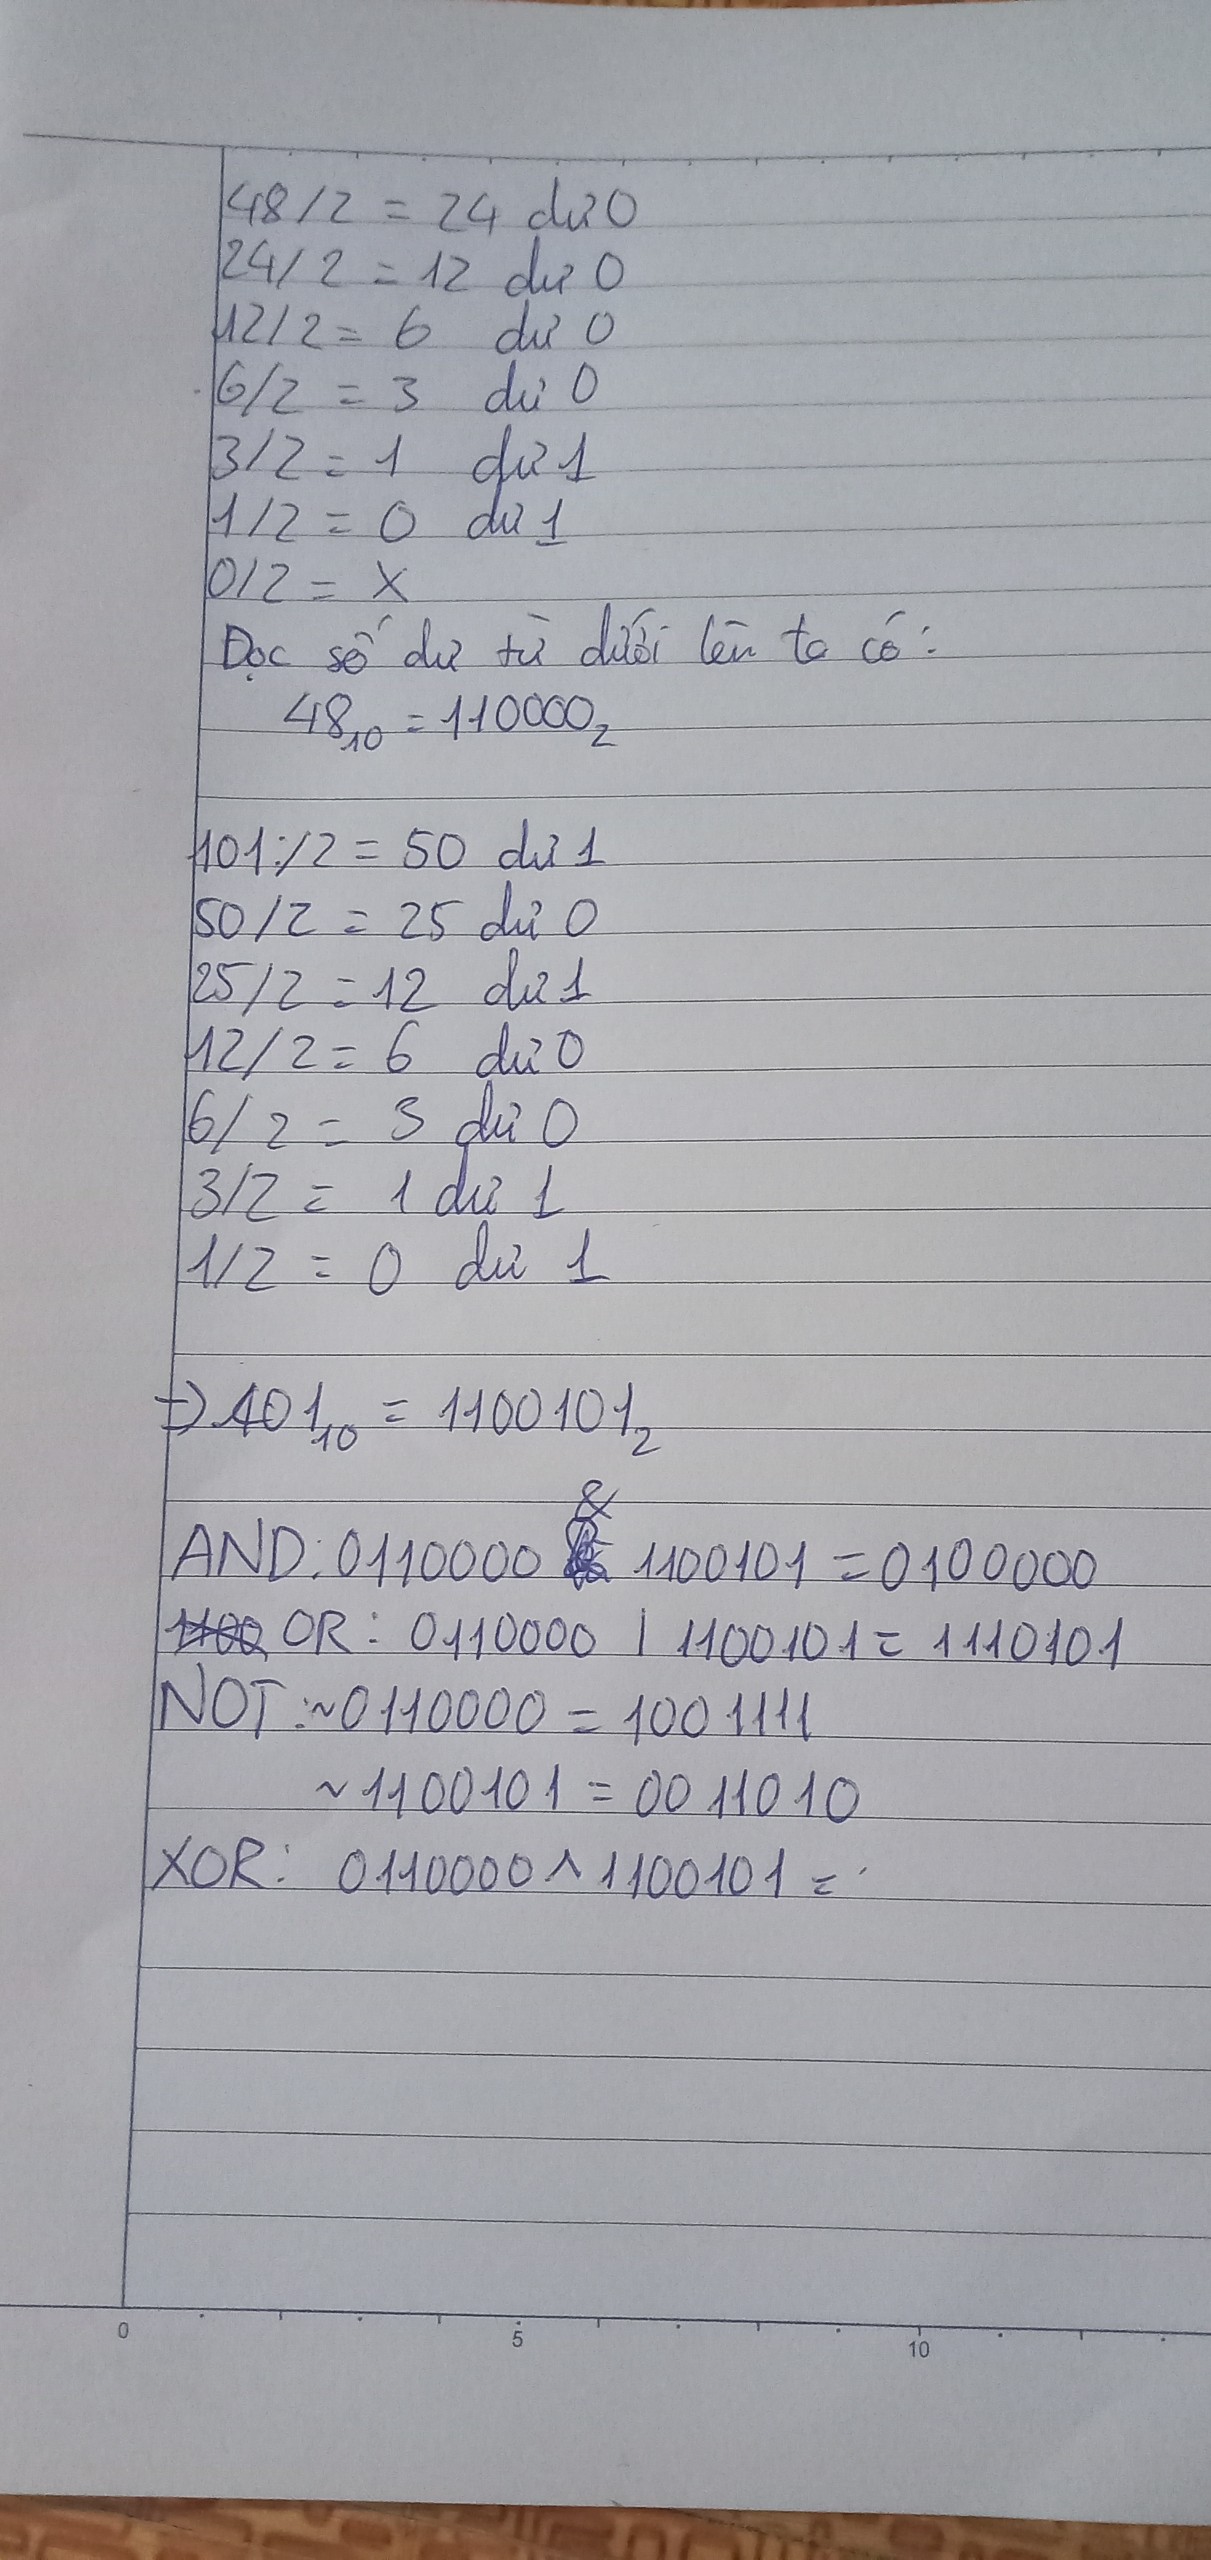 48/2 = 24 dư 0
24/2 = 12 dư 0
12/2 = 6 dư 0
6/2 = 3 dư 0
3/2 = 1 dư 1
1/2 = 0 dư 1
0/2 = X
Đọc số dư từ dưới lên ta có:
48₁₀ = 110000₂
101:/2 = 50 dư 1
50/2 = 25 dư 0
25/2 = 12 dư 1
12/2 = 6 dư 0
6/2 = 3 dư 0
3/2 = 1 dư 1
1/2 = 0 dư 1
=> 101₁₀ = 1100101₂
AND: 0110000 & 1100101 = 0100000
OR: 0110000 | 1100101 = 1110101
NOT: ~0110000 = 1001111
~1100101 = 0011010
XOR: 0110000 ^ 1100101 =
0 5 10